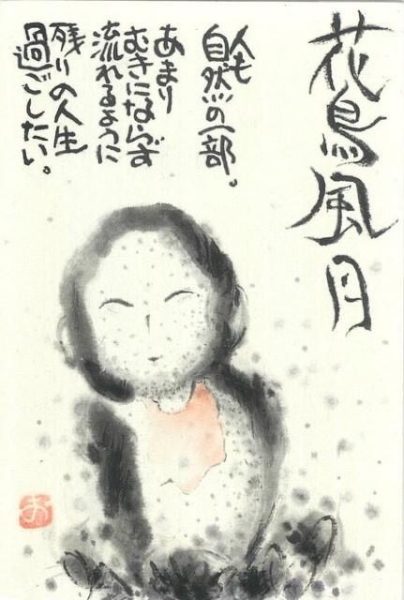 花鳥風月
人も
自然の一部。
あまり
むきにならず
流れるように
残りの人生
過ごしたい。